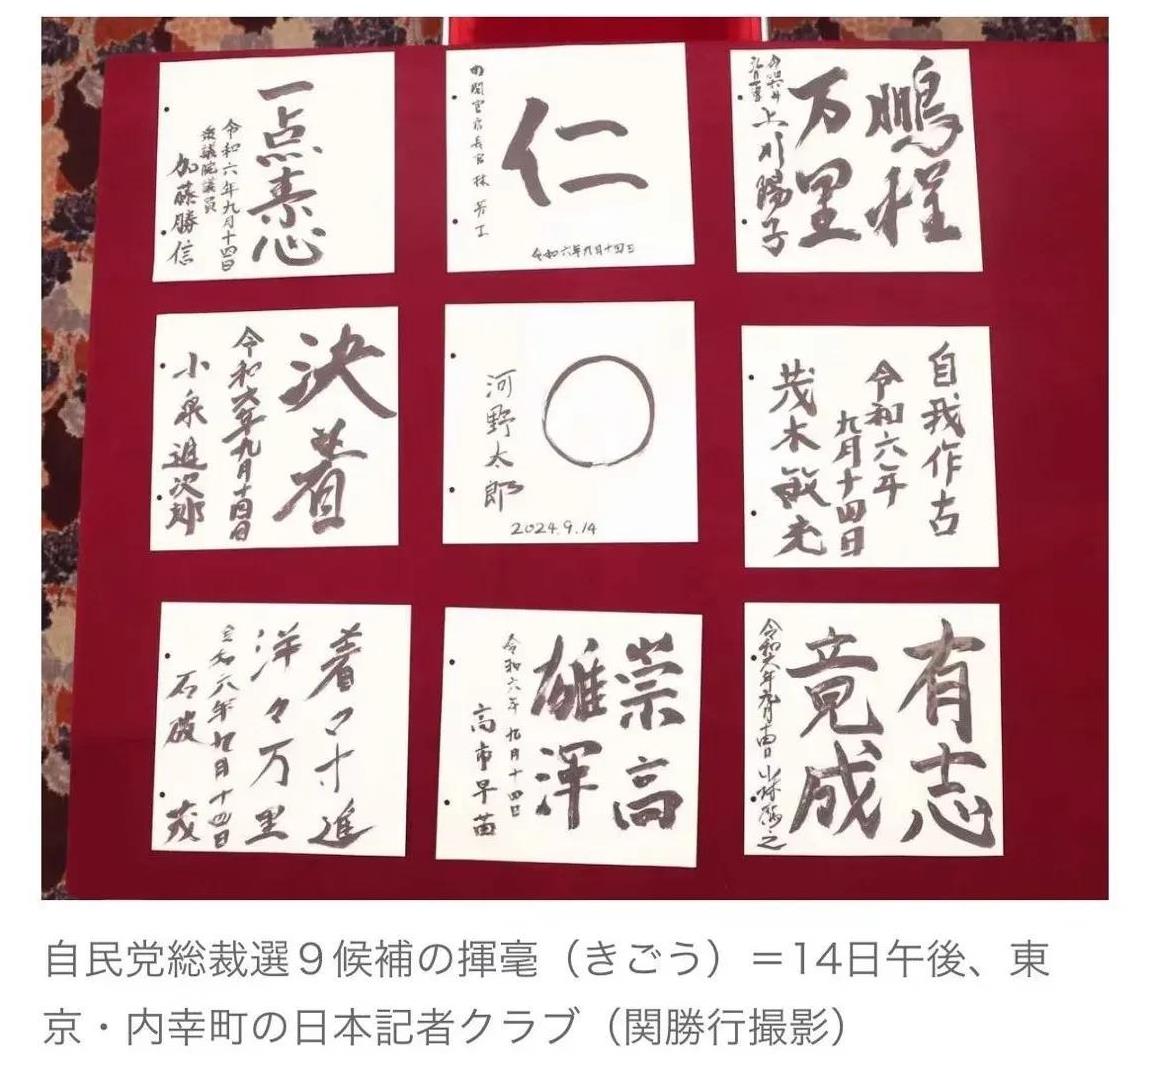 一点素心
令和六年九月十四日
衆議院議員
加藤勝信
仁
内閣官房長官 林 芳正
令和六年九月十四日
鵬程
万里
令和六年
九月十四日
上川陽子
決着
令和六年九月十四日
小泉進次郎
○
河野太郎
2024.9.14
自我作古
令和六年
九月十四日
茂木敏充
着々寸進
洋々万里
令和六年九月十四日
石破 茂
崇高
雄渾
令和六年九月十四日
高市早苗
有志
竟成
令和六年九月十四日 小林鷹之
自民党総裁選９候補の揮毫（きごう）＝14日午後、東
京・内幸町の日本記者クラブ（関勝行撮影）